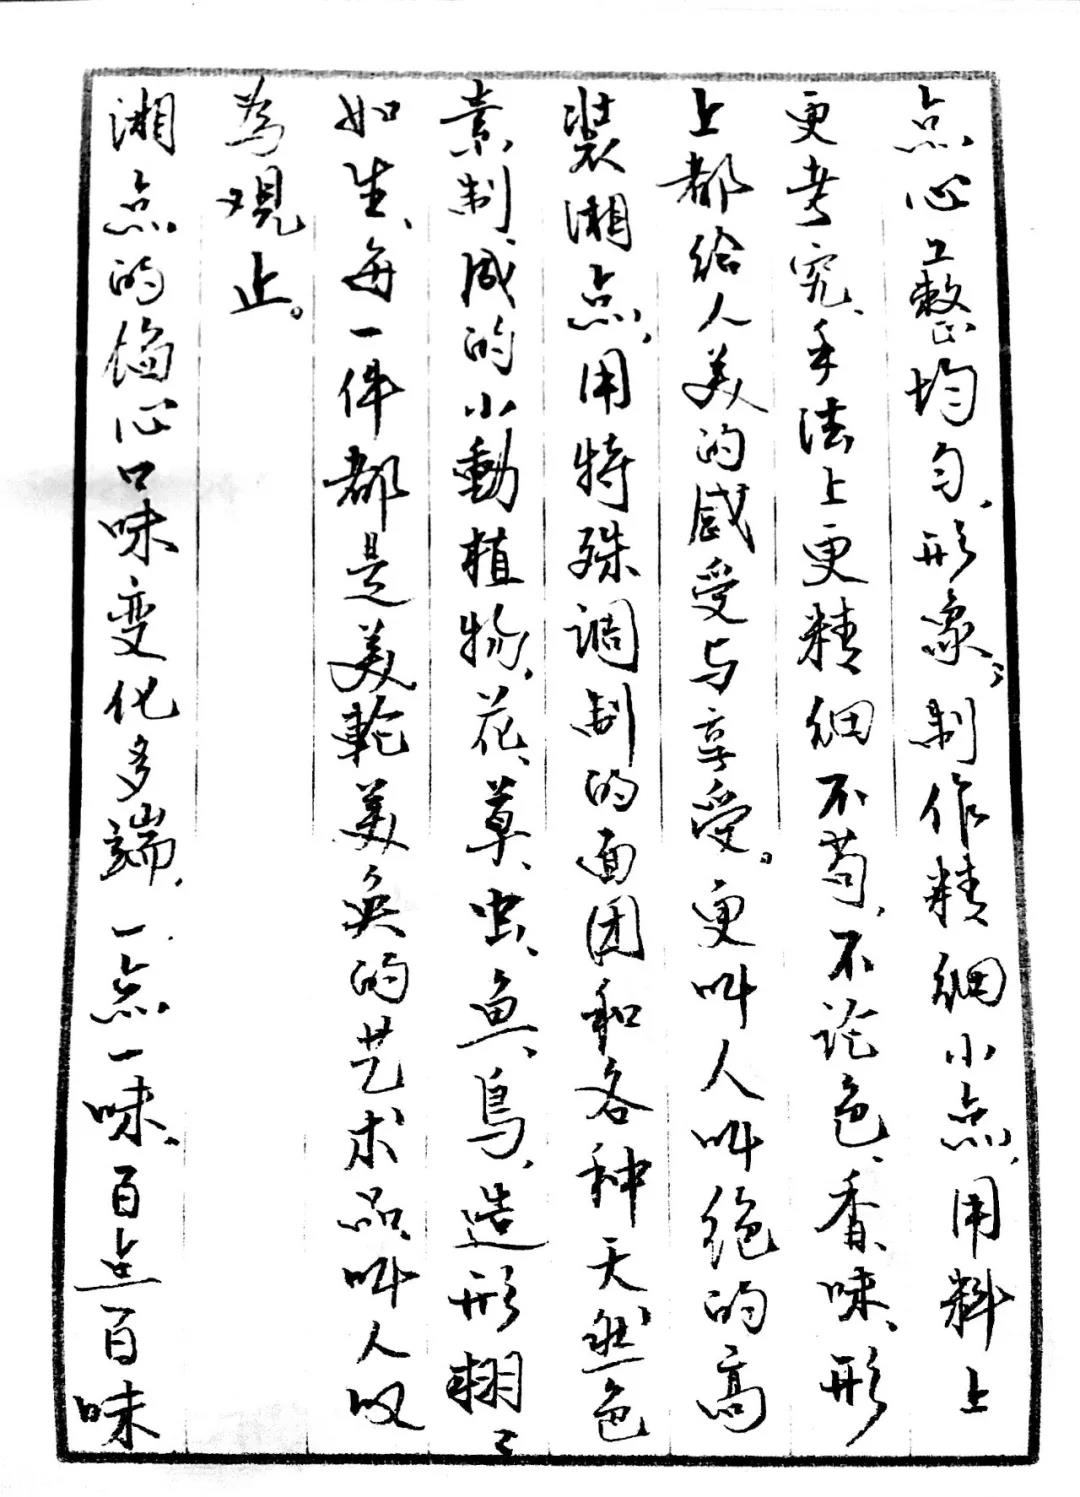 点心工整均匀、形象；制作精细小点，用料上
更考究、手法上更精细不苟，不论色、香、味、形
上都给人美的感受与享受。更叫人叫绝的高
装湘点，用特殊调制的面团和各种天然色
素，制成的小動植物，花、草、虫、鱼、鸟，造形栩〻
如生、每一件都是美轮美奂的艺术品，叫人叹
為观止。
湘点的馅心口味变化多端，一点一味。百点百味